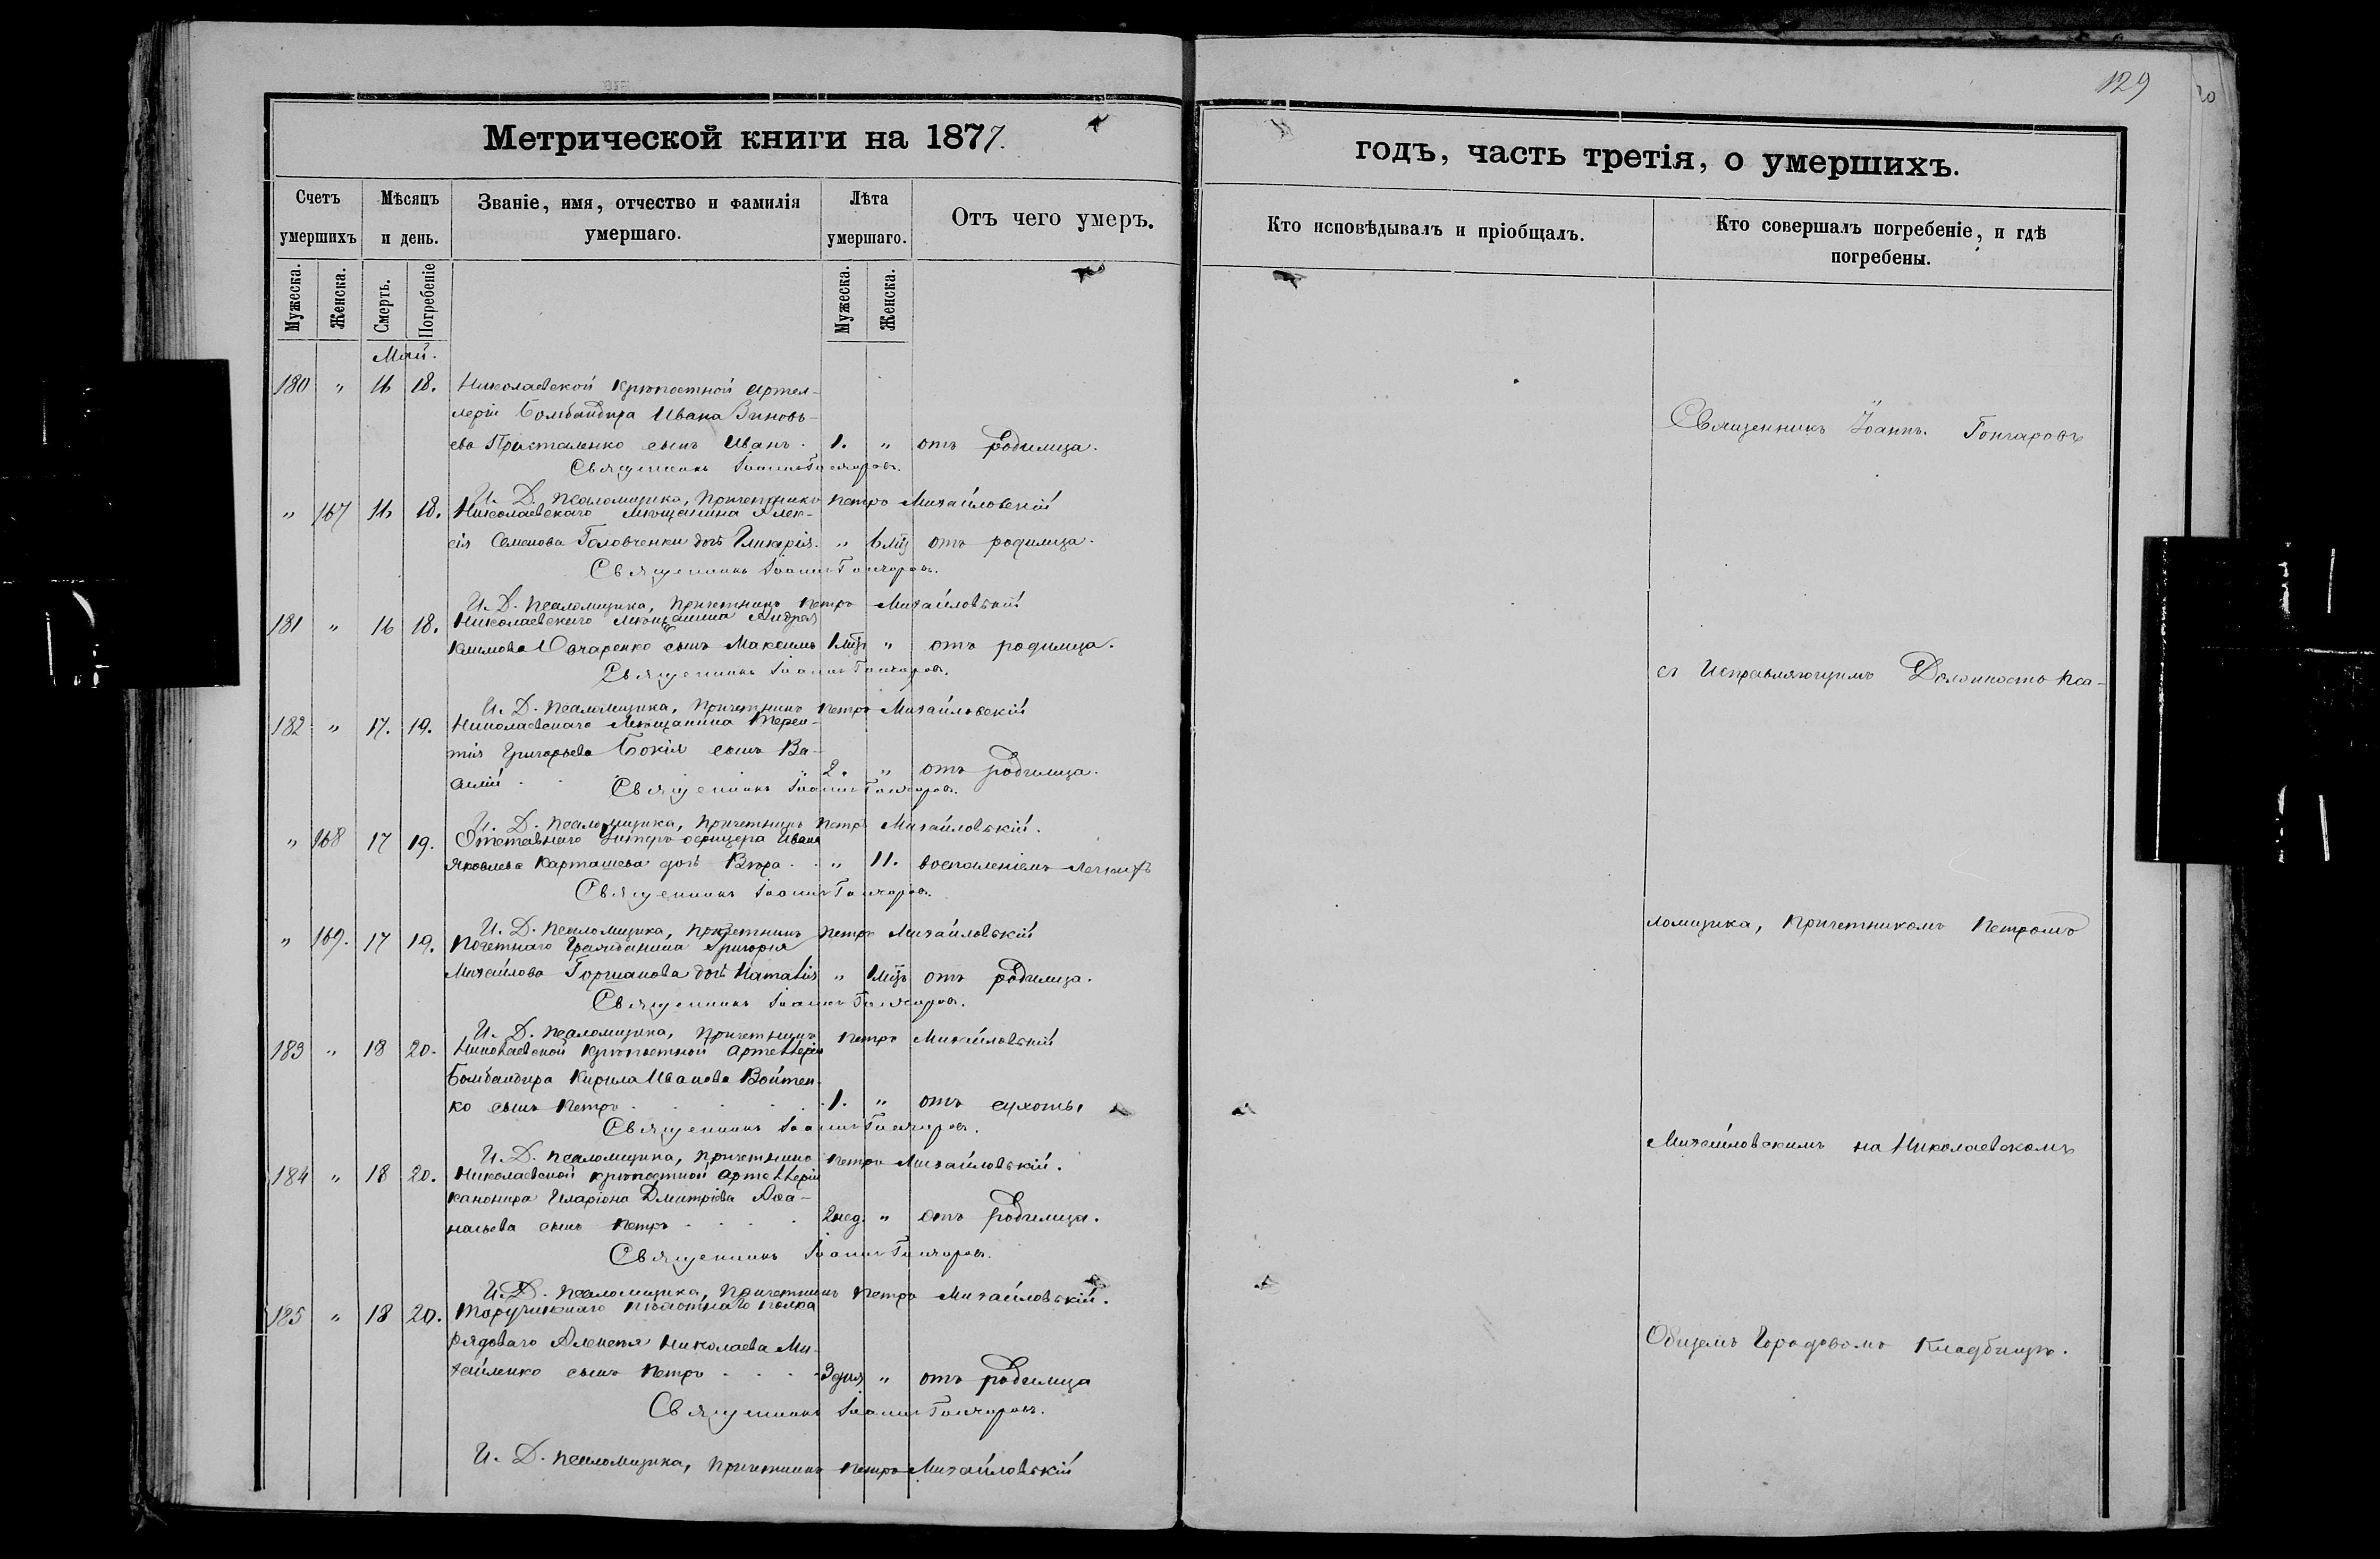 129
20
Метрической книги на 1877.
годъ, часть третія, о умершихъ.
Счетъ умершихъ
Мѣсяцъ и день.
Званіе, имя, отчество и фамилія умершаго.
Лѣта умершаго.
Отъ чего умеръ.
Кто исповѣдывалъ и пріобщалъ.
Кто совершалъ погребеніе, и гдѣ погребены.
Мужеска.
Женска.
Смерть.
Погребеніе
Мужеска.
Женска.
Май.
180 " 16 18. Николаевской крѣпостной Артил-
леріи Бомбандира Ивана Зиновь-
ева Присталенко сынъ Иванъ. 1. " отъ родимца.
Священникъ Іоаннъ Гончаровъ.
И. Д. Псаломщика, Причетникъ Петръ Михайловскій
" 167 16 18. Николаевскаго мѣщанина Алек-
сія Семенова Головченки дочь Гликерія. " 6 мцъ отъ родимца.
Священникъ Іоаннъ Гончаровъ.
И. Д. Псаломщика, Причетникъ Петръ Михайловскій
181 " 16 18. Николаевскаго мѣщанина Андрея
Климова Овчаренко сынъ Максимъ 1 мцъ " отъ родимца.
Священникъ Іоаннъ Гончаровъ.
И. Д. Псаломщика, Причетникъ Петръ Михайловскій
182 " 17. 19. Николаевскаго мѣщанина Терен-
тія Григорьева Бокія сынъ Ва-
силій 2. " отъ родимца.
Священникъ Іоаннъ Гончаровъ.
И. Д. Псаломщика, Причетникъ Петръ Михайловскій.
" 168 17 19. Отставнаго Унтеръ-офицера Ивана
Яковлева Карташева дочь Вѣра " 11. воспаленіемъ легкихъ
Священникъ Іоаннъ Гончаровъ.
И. Д. Псаломщика, Причетникъ Петръ Михайловскій
" 169. 17 19. Почетнаго Гражданина Григорія
Михайлова Горшанова дочь Наталія " 1 мцъ отъ родимца.
Священникъ Іоаннъ Гончаровъ.
И. Д. Псаломщика, Причетникъ Петръ Михайловскій
183 " 18 20. Николаевской крѣпостной Артиллеріи
Бомбандира Кирила Иванова Войтен-
ко сынъ Петръ 1. " отъ сухоты
Священникъ Іоаннъ Гончаровъ.
И. Д. Псаломщика, Причетникъ Петръ Михайловскій.
184 " 18 20. Николаевской крѣпостной Артиллеріи
канонира Иларіона Дмитріева Афа-
насьева сынъ Петръ 2 нед. " отъ родимца.
Священникъ Іоаннъ Гончаровъ.
И. Д. Псаломщика, Причетникъ Петръ Михайловскій.
185 " 18 20. пѣхотнаго полка
рядоваго Алексея Николаева Ми-
хайленко сынъ Петръ 3 дня " отъ родимца
Священникъ Іоаннъ Гончаровъ.
И. Д. Псаломщика, Причетникъ Петръ Михайловскій
Священникъ Іоаннъ Гончаровъ
съ Исправляющимъ Должность Пса-
ломщика, Причетникомъ Петромъ
Михайловскимъ на Николаевскомъ
Общемъ Городовомъ Кладбищѣ.